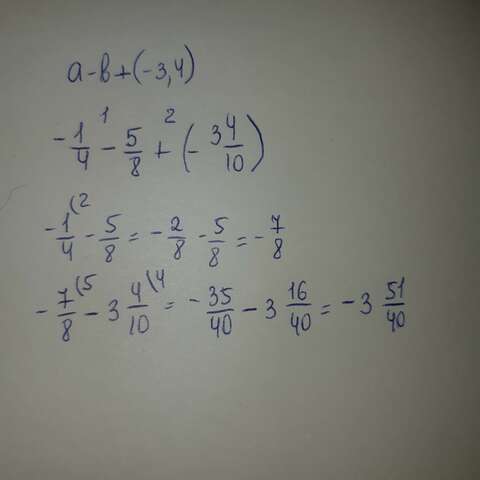 a-b+(-3,4)
1 2
-1/4 - 5/8 + (-3 4/10)
-1/4 (2 - 5/8 = -2/8 - 5/8 = -7/8
-7/8 (5 - 3 4/10 (4 = -35/40 - 3 16/40 = -3 51/40